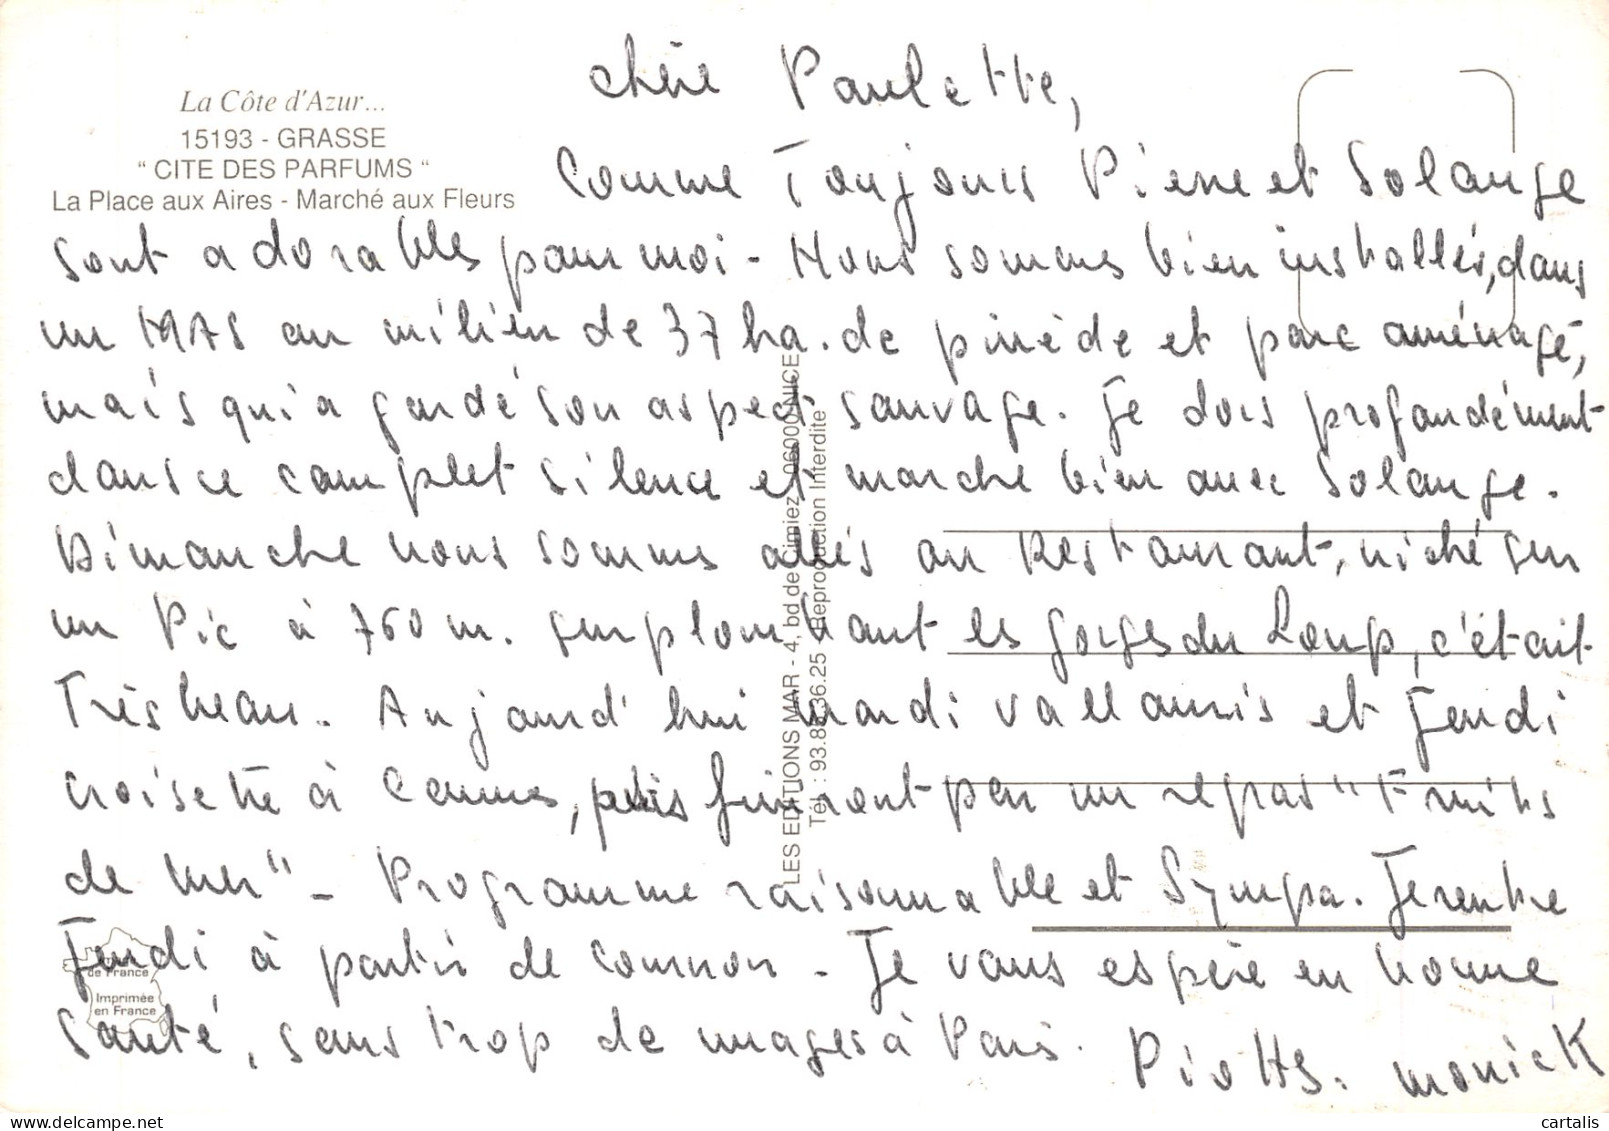 La Côte d'Azur...
15193 - GRASSE
" CITE DES PARFUMS "
La Place aux Aires - Marché aux Fleurs
chère Paulette,
Comme Toujours Pierre et Solange
sont adorables pour moi - Nous sommes bien installés, dans
un MAS au milieu de 37 ha. de pinède et parc aménagé,
mais qui a gardé son aspect sauvage. Je dors profondément
dans ce complet silence et marche bien avec Solange.
Dimanche nous sommes allés au Restaurant, niché sur
un Pic à 760 m. surplombant les gorges du Loup, c'était
Très beau. Aujourd'hui mardi Vallauris et Jeudi
croisette à Cannes, puis finiront par un repas "Fruits
de mer" - Programme raisonnable et Sympa. Je rentre
Jeudi à partir de - Je vous espère en bonne
santé, sans trop de nuages à Paris. Monick
LES EDITIONS MAR - 4, bd de Cimiez 06000 NICE
Reproduction Interdite
de France
Imprimée
en France
cartalis